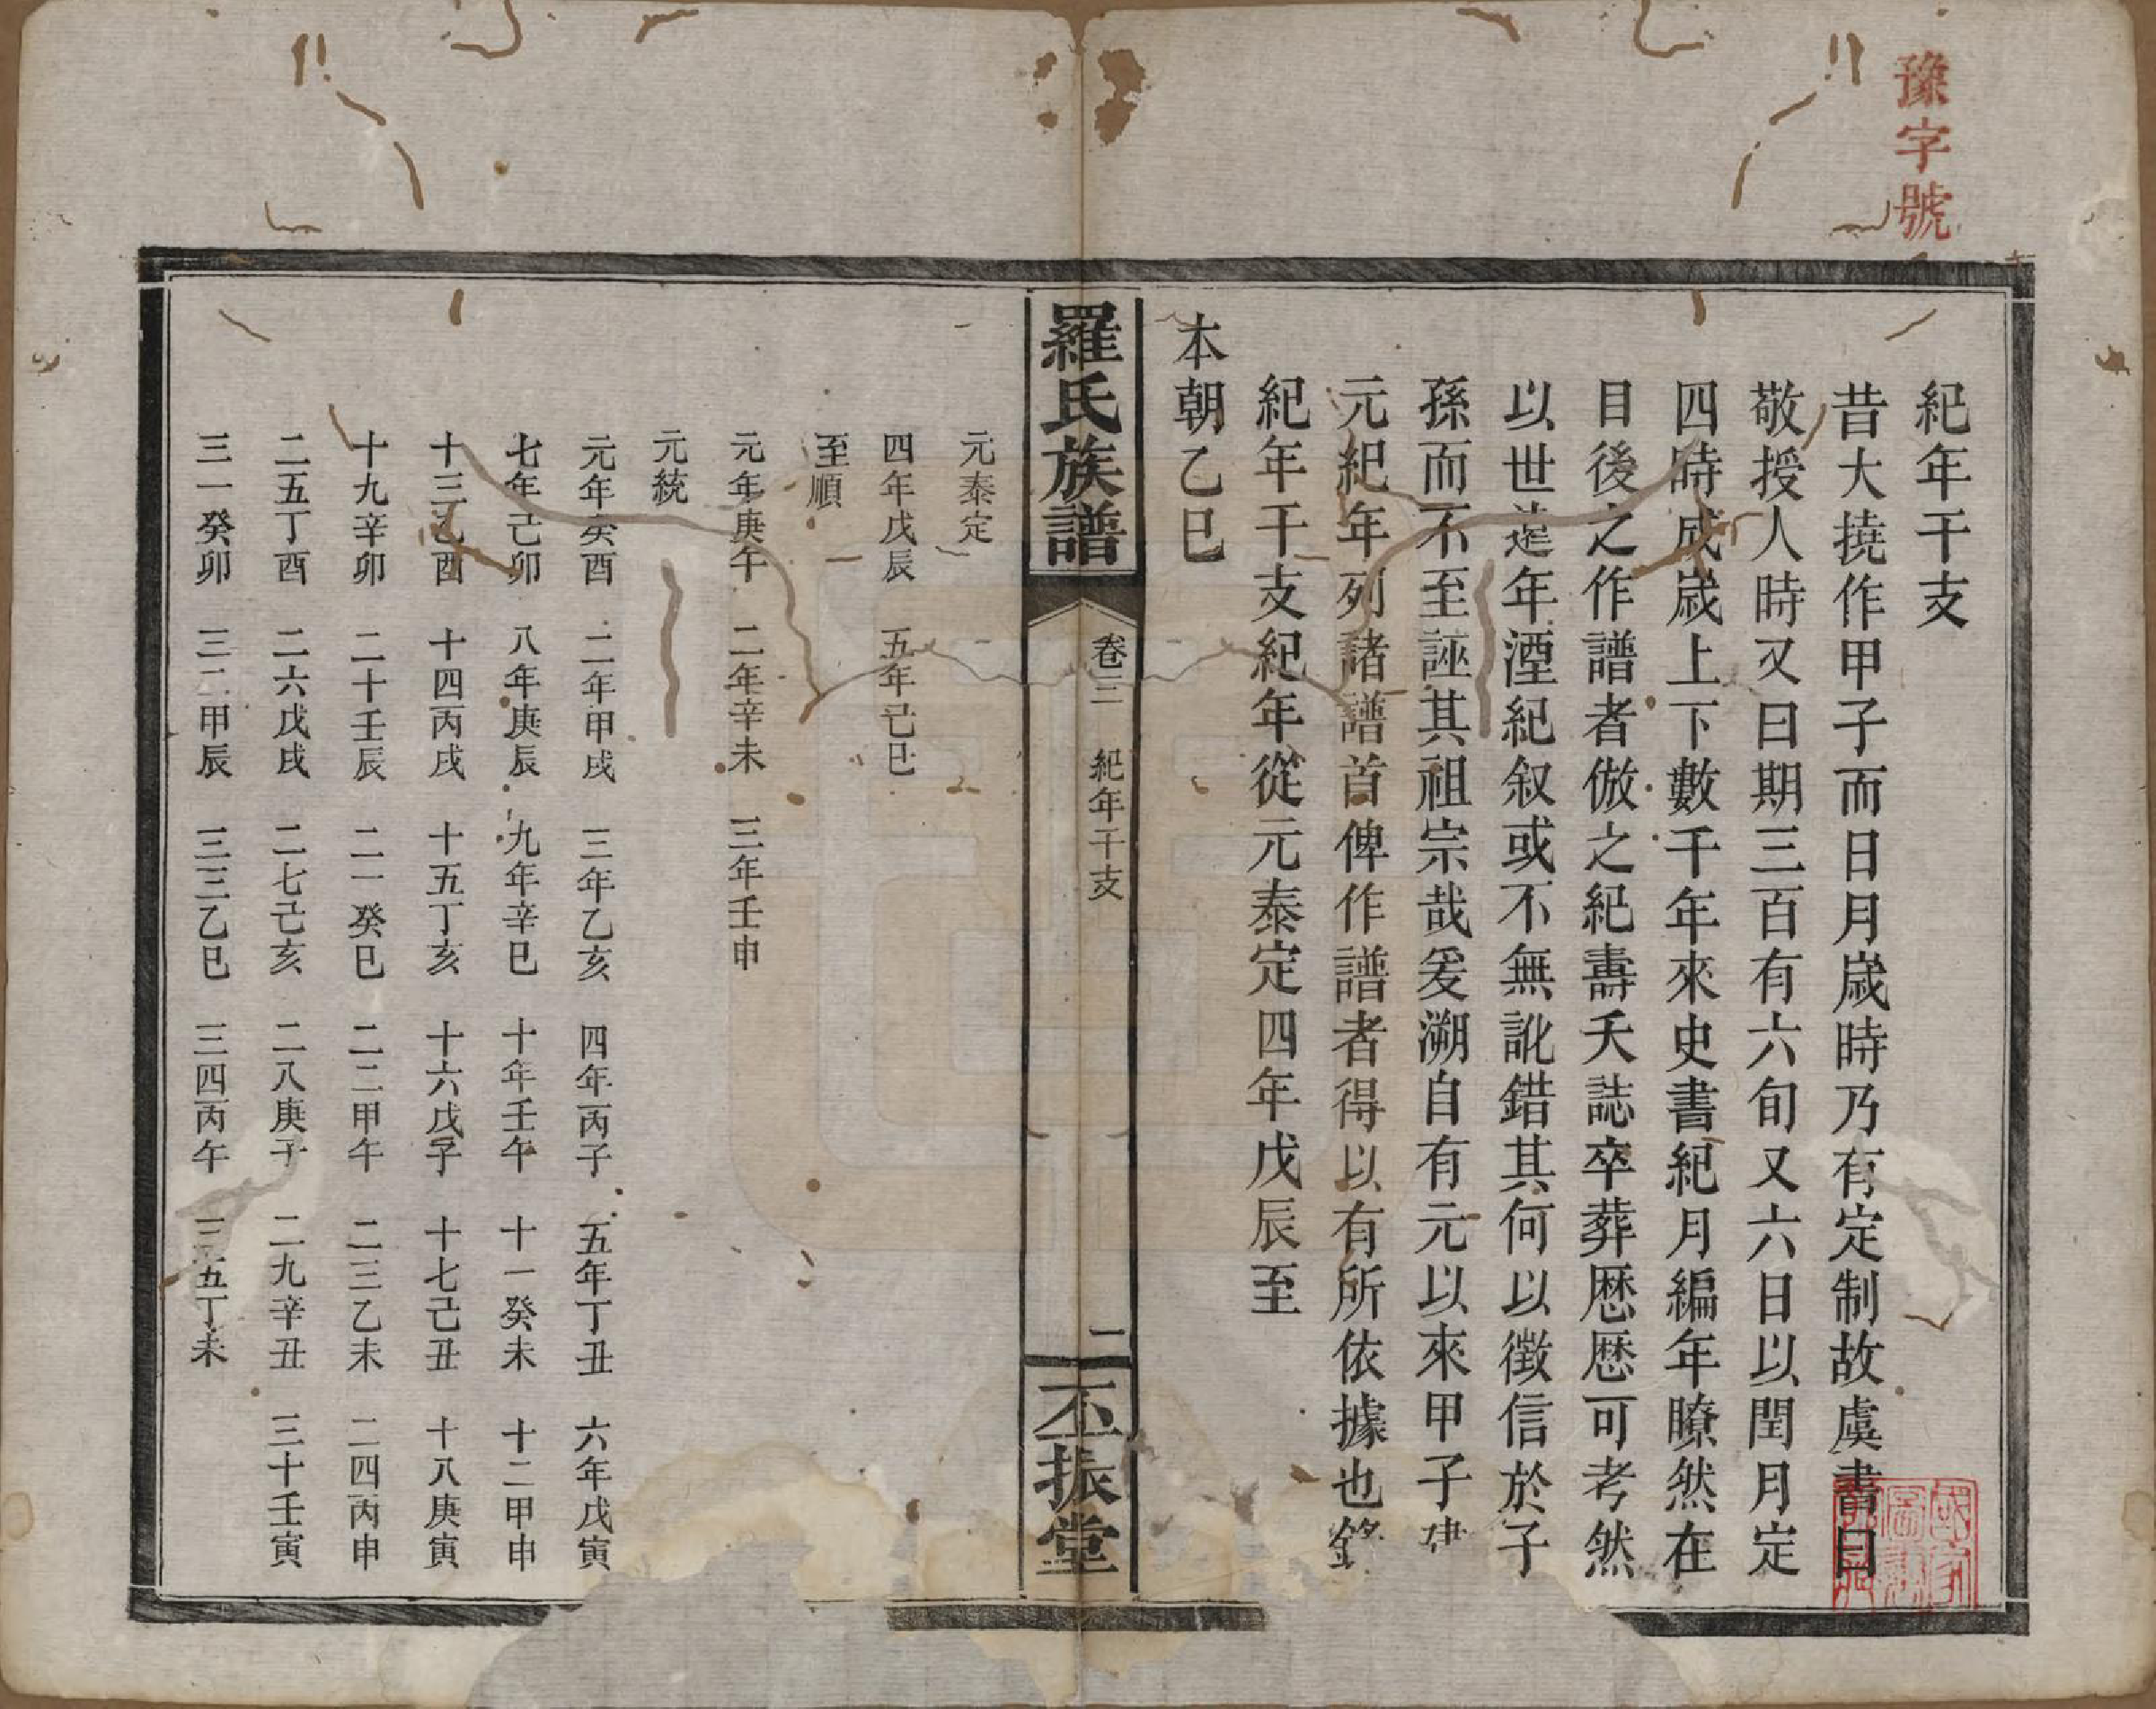 豫字號
紀年干支
昔大撓作甲子而日月歲時乃有定制故虞書曰
敬授人時又曰期三百有六旬又六日以閏月定
四時成歲上下數千年來史書紀月編年瞭然在
目後之作譜者倣之紀壽夭誌卒葬厯厯可考然
以世遠年湮紀叙或不無訛錯其何以徵信於子
孫而不至誣其祖宗哉爰溯自有元以來甲子建
元紀年列諸譜首俾作譜者得以有所依據也
紀年干支紀年從元泰定四年戊辰至
本朝乙巳
羅氏族譜
卷三 紀年干支
二
丕振堂
元泰定
四年戊辰 五年己巳
至順
元年庚午 二年辛未 三年壬申
元統
元年癸酉 二年甲戌 三年乙亥 四年丙子 五年丁丑 六年戊寅
七年己卯 八年庚辰 九年辛巳 十年壬午 十一癸未 十二甲申
十三乙酉 十四丙戌 十五丁亥 十六戊子 十七己丑 十八庚寅
十九辛卯 二十壬辰 二一癸巳 二二甲午 二三乙未 二四丙申
二五丁酉 二六戊戌 二七己亥 二八庚子 二九辛丑 三十壬寅
三一癸卯 三二甲辰 三三乙巳 三四丙午 三五丁未